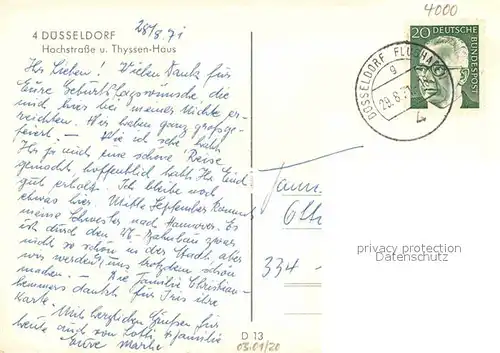 4000
28/8.71
4 DÜSSELDORF
Hochstraße u. Thyssen-Haus
Ihr Lieben! Vielen Dank für
Eure Geburtstagswünsche die
mich hier bei meiner Nichte er-
reichten. Wir haben ganz groß ge-
feiert. — Wie ich sehe habt
Ihr ja auch eine schöne Reise
gemacht hoffentlich habt Ihr Euch
gut erholt. Ich bleibe noch
etwas hier. Mitte September kommt
meine Schwester nach Hannover. Es
ist durch den U-Bahnbau zwar
nicht so schön in der Stadt, aber
wir werden's uns trotzdem schön
machen. — Die Familie Christian-
hemmers dankt für Ihre
Karte. Mit herzlichen Grüßen für
heute auch von Lotti + Familie
Eure
DÜSSELDORF FLUGHAFEN
g
29.8.71
20 DEUTSCHE
BUNDESPOST
334 —
privacy protection
Datenschutz
D 13
03.01/20